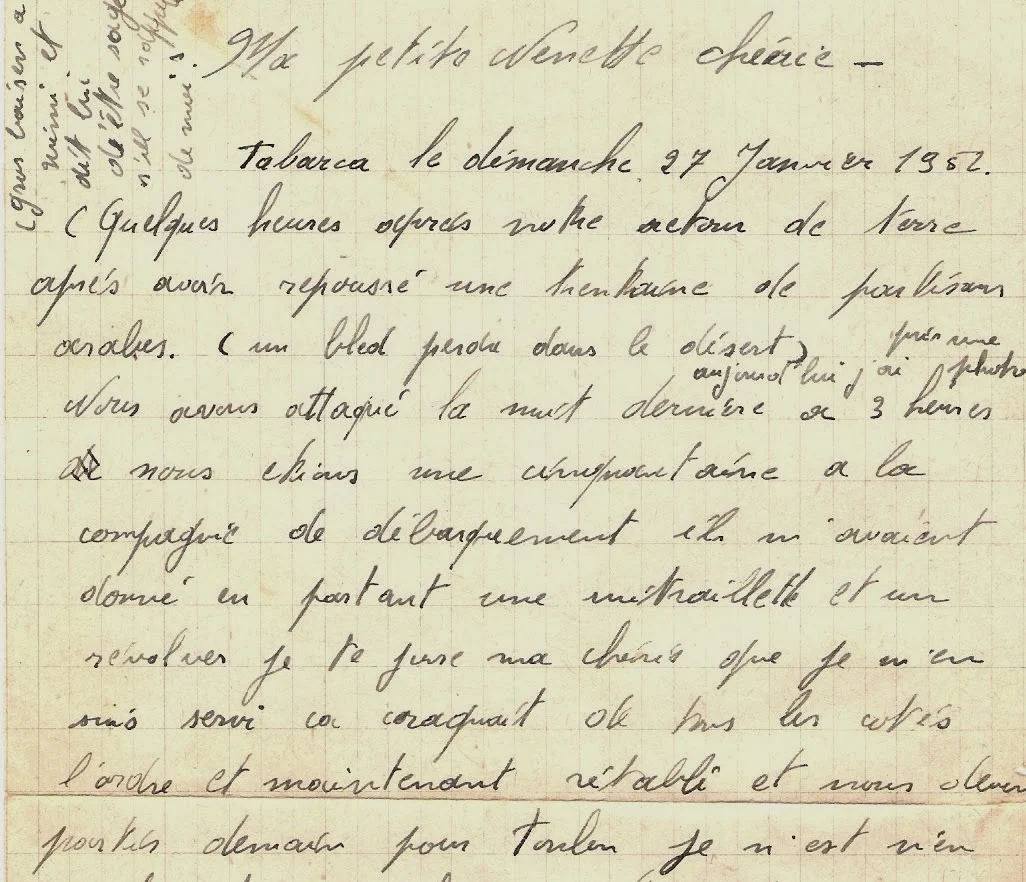 Ma petite Nenette chérie –
Tabarca le démanche 27 Janvier 1952.
(Quelques heures aprés notre retour de terre
aprés avoir repoussé une trentaine de partisans
arabes. (un bled perdu dans le désert)
aujourd'hui j'ai pris une photo
Nous avons attaqué la nuit dernière a 3 heures
nous etions une cinquantaine a la
compagnie de débarquement ils m'avaient
donné en partant une mitraillette et un
révolver je te jure ma chérie que je m'en
suis servi ca craquait de tous les cotés
l'ordre et maintenant rétabli et nous devons
partir demain pour Toulon je n'est rien
(gros baiser a
mimi et
dit lui
d'être sage
s'il se
de moi.